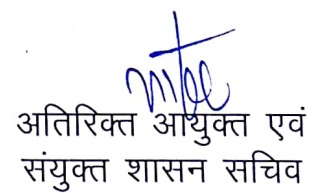 अतिरिक्त आयुक्त एवं
संयुक्त शासन सचिव